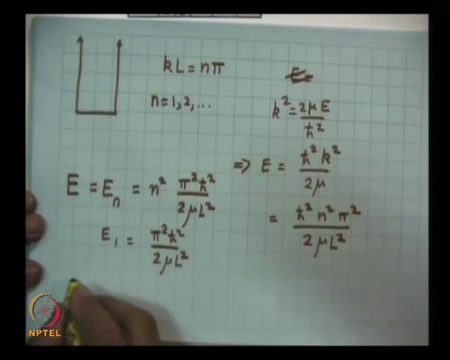 kL = nπ
n = 1, 2, ...
k² = 2μE / ħ²
⇒ E = ħ²k² / 2μ
= ħ²n²π² / 2μL²
E = Eₙ = n² π²ħ² / 2μL²
E₁ = π²ħ² / 2μL²
NPTEL